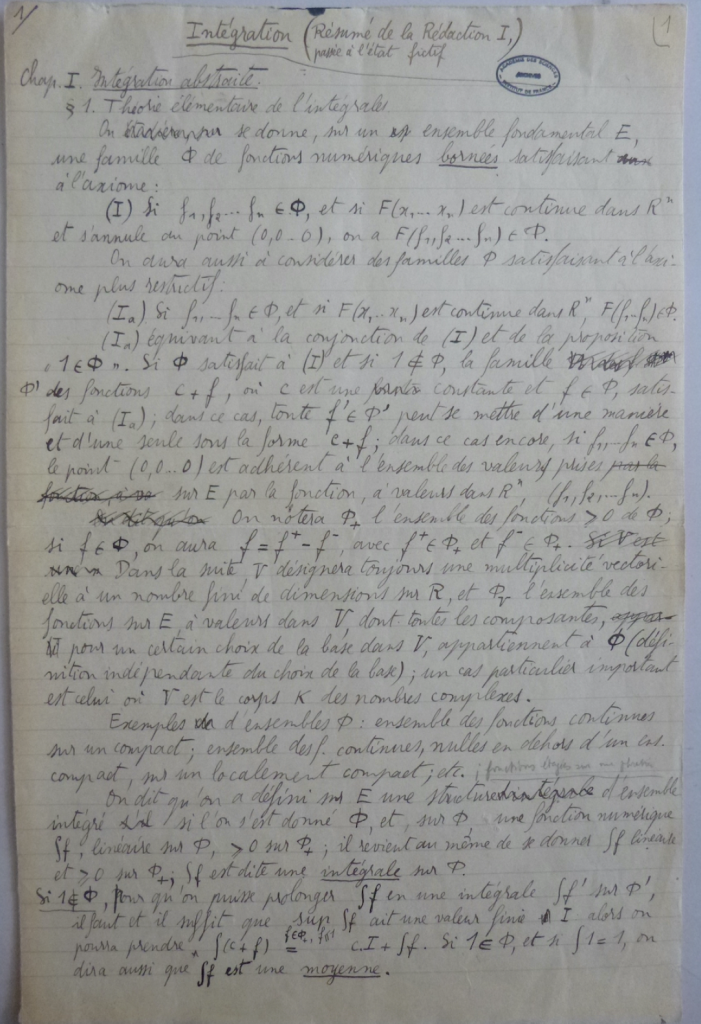 1/
1
Intégration (Résumé de la Rédaction I,
passée à l'état fictif)
ACADÉMIE DES SCIENCES
ARCHIVES
INSTITUT DE FRANCE
Chap. I. Intégration abstraite.
§ 1. Théorie élémentaire de l'intégrales.
On se donne, sur un ensemble fondamental E,
une famille Φ de fonctions numériques bornées satisfaisant
à l'axiome :
(I) Si f₁, f₂ ... fₙ ∈ Φ, et si F(x₁ ... xₙ) est continue dans Rⁿ
et s'annule au point (0,0...0), on a F(f₁, f₂ ... fₙ) ∈ Φ.
On aura aussi à considérer des familles Φ satisfaisant à l'axi-
ome plus restrictif :
(Iₐ) Si f₁, ... fₙ ∈ Φ, et si F(x₁ ... xₙ) est continue dans Rⁿ, F(f₁...fₙ) ∈ Φ.
(Iₐ) équivaut à la conjonction de (I) et de la proposition
« 1 ∈ Φ ». Si Φ satisfait à (I) et si 1 ∉ Φ, la famille
Φ' des fonctions c + f, où c est une constante et f ∈ Φ, satis-
fait à (Iₐ) ; dans ce cas, toute f' ∈ Φ' peut se mettre d'une manière
et d'une seule sous la forme c + f ; dans ce cas encore, si f₁ ... fₙ ∈ Φ,
le point (0,0...0) est adhérent à l'ensemble des valeurs prises par la
fonction sur E par la fonction, à valeurs dans Rⁿ, (f₁, f₂, ... fₙ).
On notera Φ₊ l'ensemble des fonctions ⩾ 0 de Φ ;
si f ∈ Φ, on aura f = f⁺ - f⁻, avec f⁺ ∈ Φ₊ et f⁻ ∈ Φ₊. Si V est
Dans la suite, V désignera toujours une multiplicité vectori-
elle à un nombre fini de dimensions sur R, et Φᵥ l'ensemble des
fonctions sur E, à valeurs dans V dont toutes les composantes,
pour un certain choix de la base dans V, appartiennent à Φ (défi-
nition indépendante du choix de la base) ; un cas particulier important
est celui où V est le corps K des nombres complexes.
Exemples d'ensembles Φ : ensemble des fonctions continues
sur un compact ; ensemble des f. continues, nulles en dehors d'un ens.
compact, sur un localement compact ; etc. ; fonctions
On dit qu'on a défini sur E une structure d'ensemble
intégré si l'on s'est donné Φ, et, sur Φ une fonction numérique
∫f, linéaire sur Φ, ⩾ 0 sur Φ₊ ; il revient au même de se donner ∫f linéaire
et ⩾ 0 sur Φ₊ ; ∫f est dite une intégrale sur Φ.
Si 1 ∉ Φ, pour qu'on puisse prolonger ∫f en une intégrale ∫f' sur Φ',
il faut et il suffit que sup ∫f ait une valeur finie I alors on
f∈Φ₊, f≤1
pourra prendre ∫(c+f) = c.I + ∫f. Si 1 ∈ Φ, et si ∫1 = 1, on
dira aussi que ∫f est une moyenne.